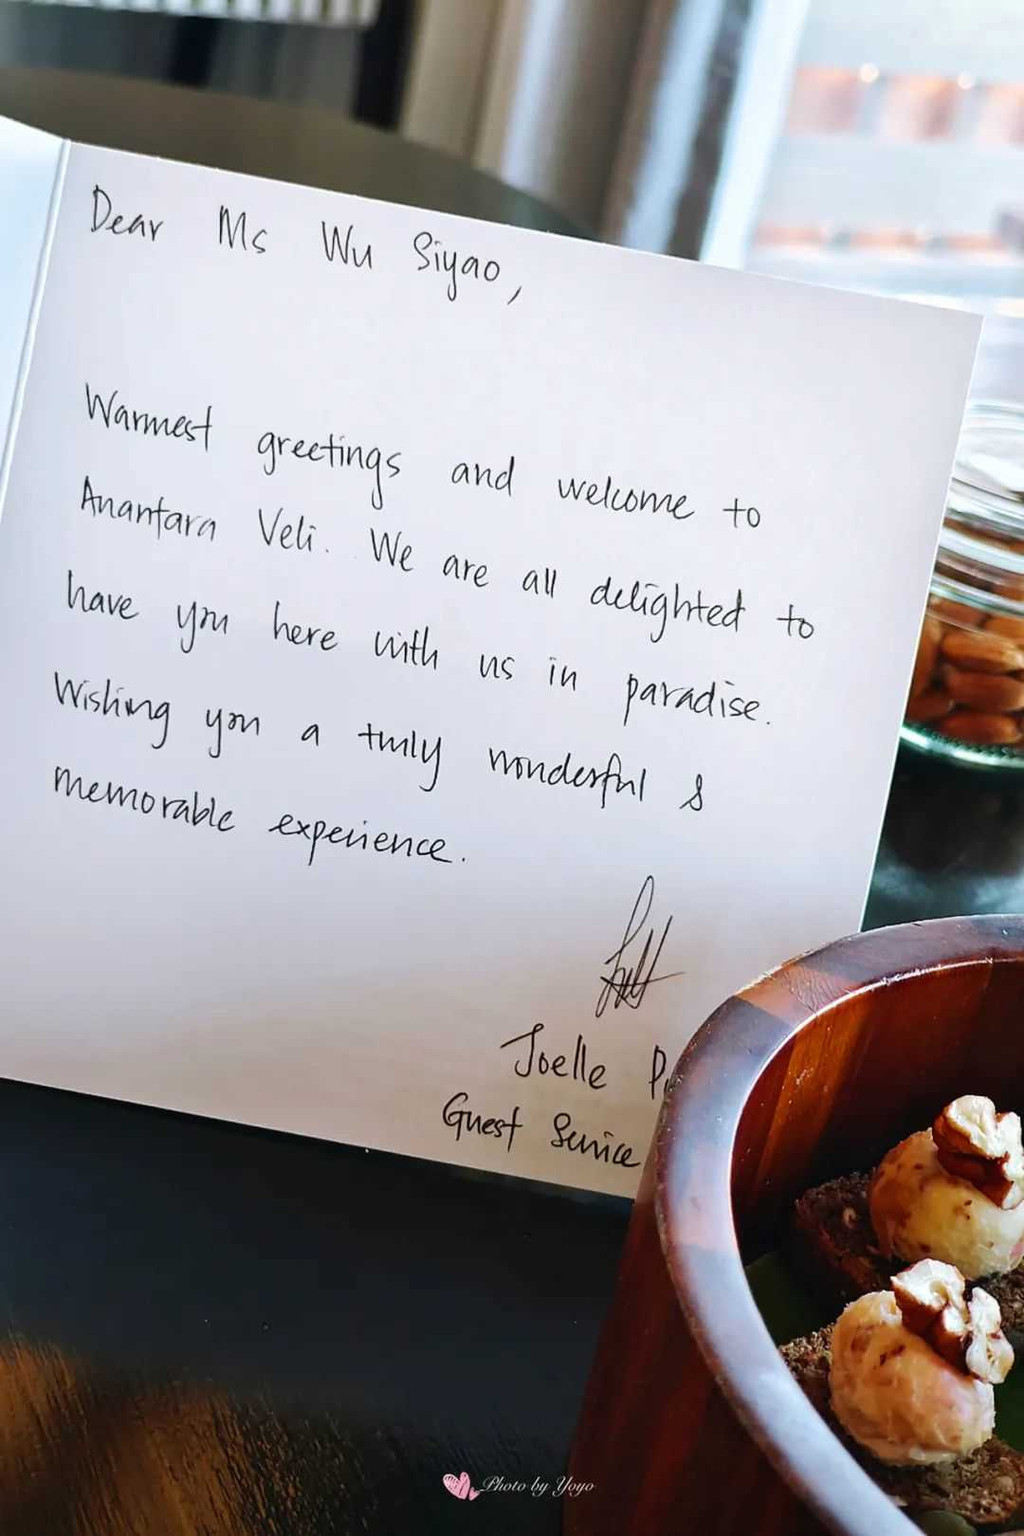 Dear Ms Wu Siyao,
Warmest greetings and welcome to
Anantara Veli. We are all delighted to
have you here with us in paradise.
Wishing you a truly wonderful &
memorable experience.
Joelle
Guest Service
Photo by Yoyo